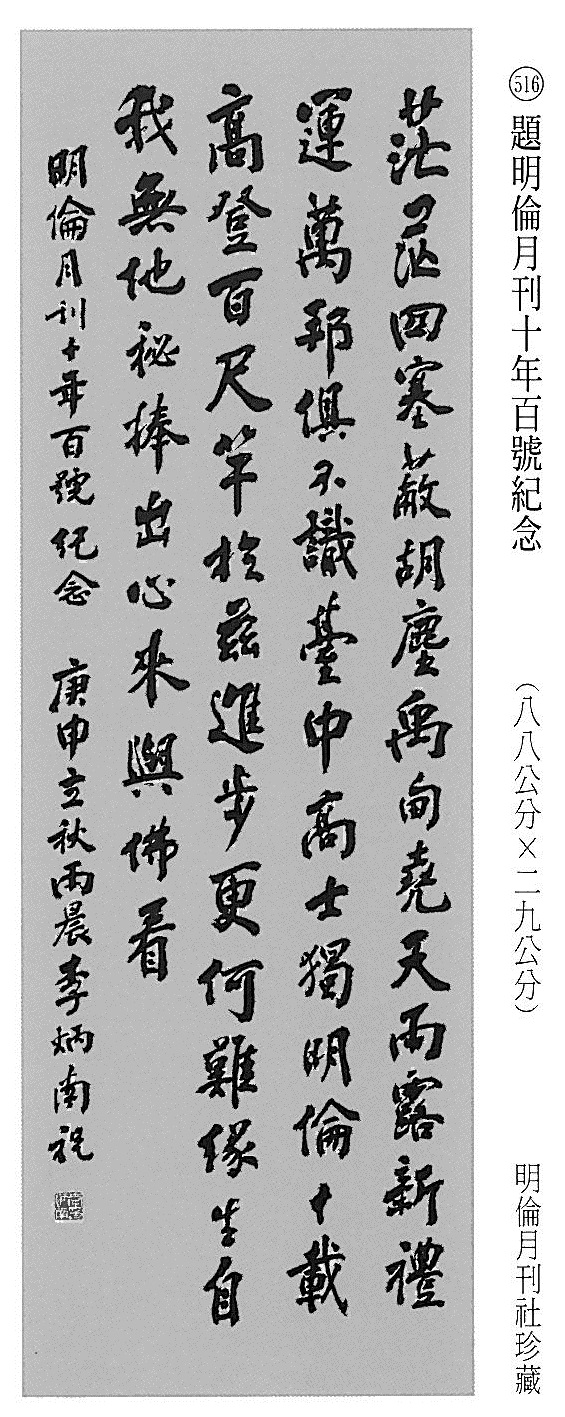 516 題明倫月刊十年百號紀念
（八八公分×二九公分）
明倫月刊社珍藏
茫茫四塞蔽胡塵禹甸堯天雨露新禮
運萬邦俱不識臺中高士獨明倫十載
高登百尺竿於茲進步更何難緣生自
我無他祕捧出心來與佛看
明倫月刊十年百號紀念 庚申立秋雨晨李炳南祝